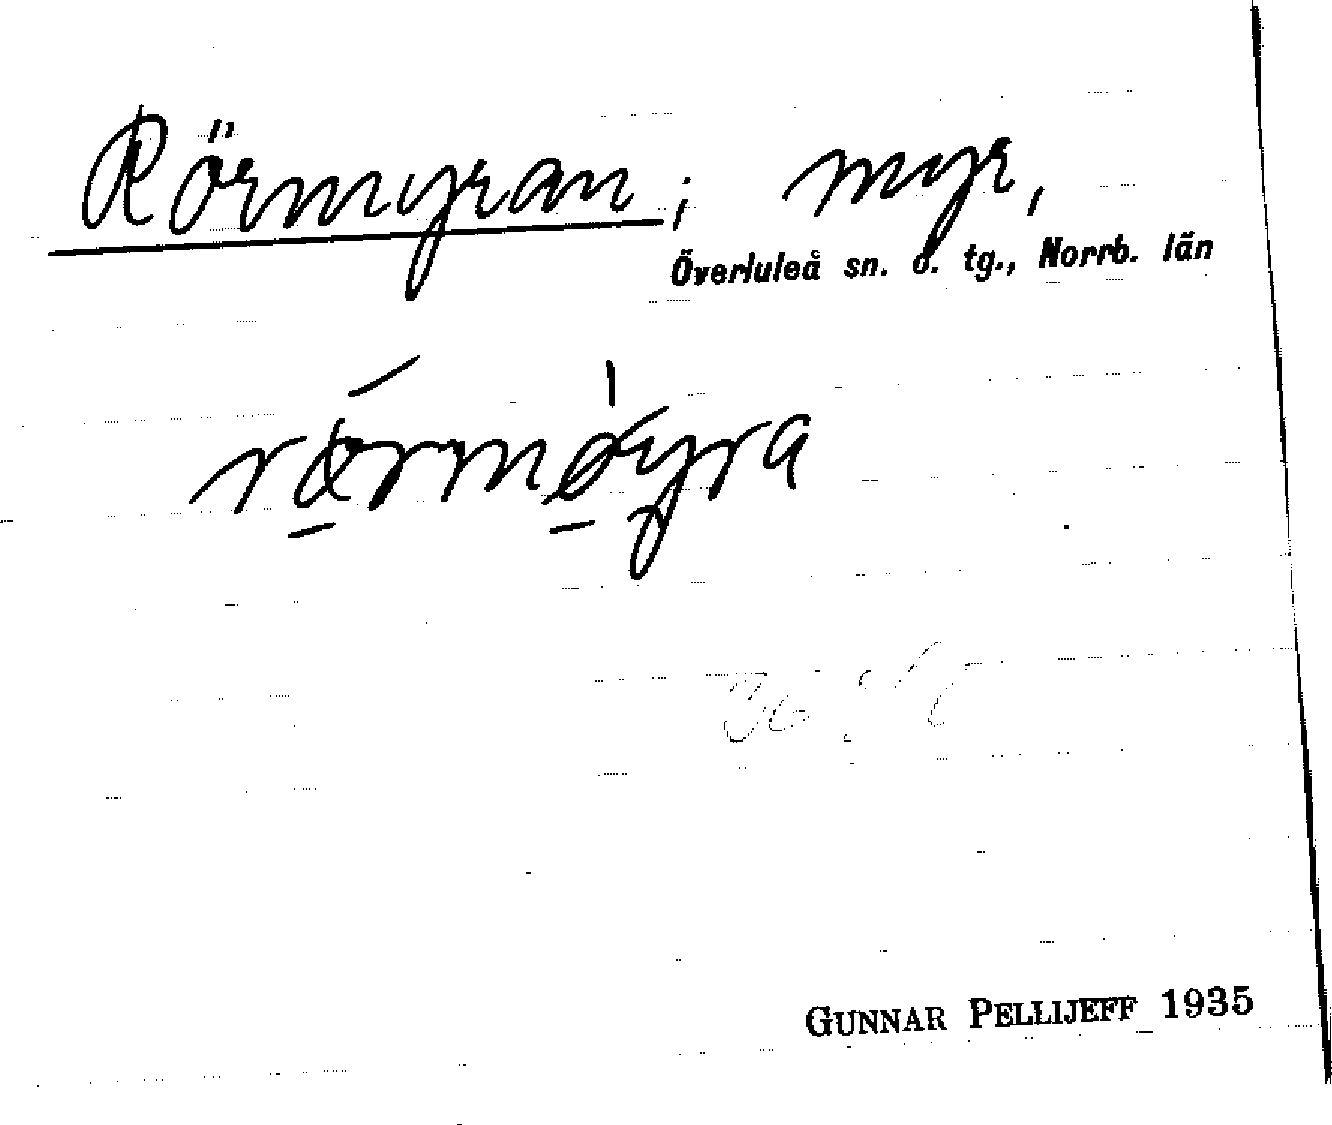 Rörmyran, myr,
Överluleå sn. o. tg., Norrb. län
rørmøyra
GUNNAR PELLIJEFF 1935